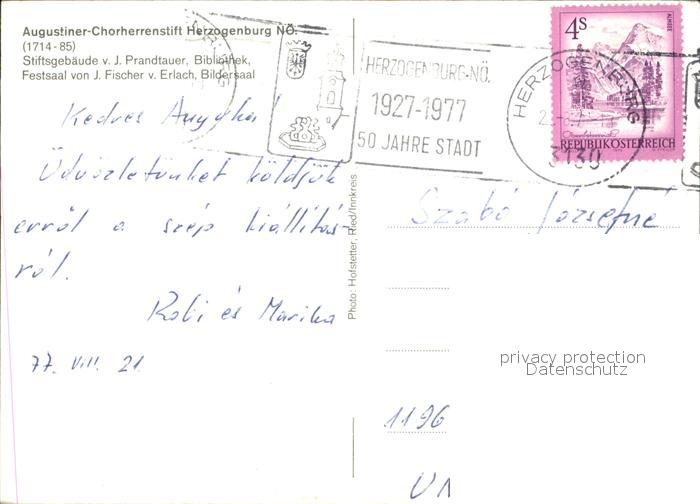 Augustiner-Chorherrenstift Herzogenburg NÖ.
(1714-85)
Stiftsgebäude v. J. Prandtauer, Bibliothek,
Festsaal von J. Fischer v. Erlach, Bildersaal
HERZOGENBURG-NÖ.
1927-1977
50 JAHRE STADT
HERZOGENBURG
3130
4s
ALMSEE
REPUBLIK ÖSTERREICH
Kedves Anyuka!
Üdvözletünket küldjük
erről a szép kiállítás-
ról.
Robi és Marika
77. VIII. 21.
Photo: Hofstetter, Ried/Innkreis
Szabó Józsefné
privacy protection
Datenschutz
1196